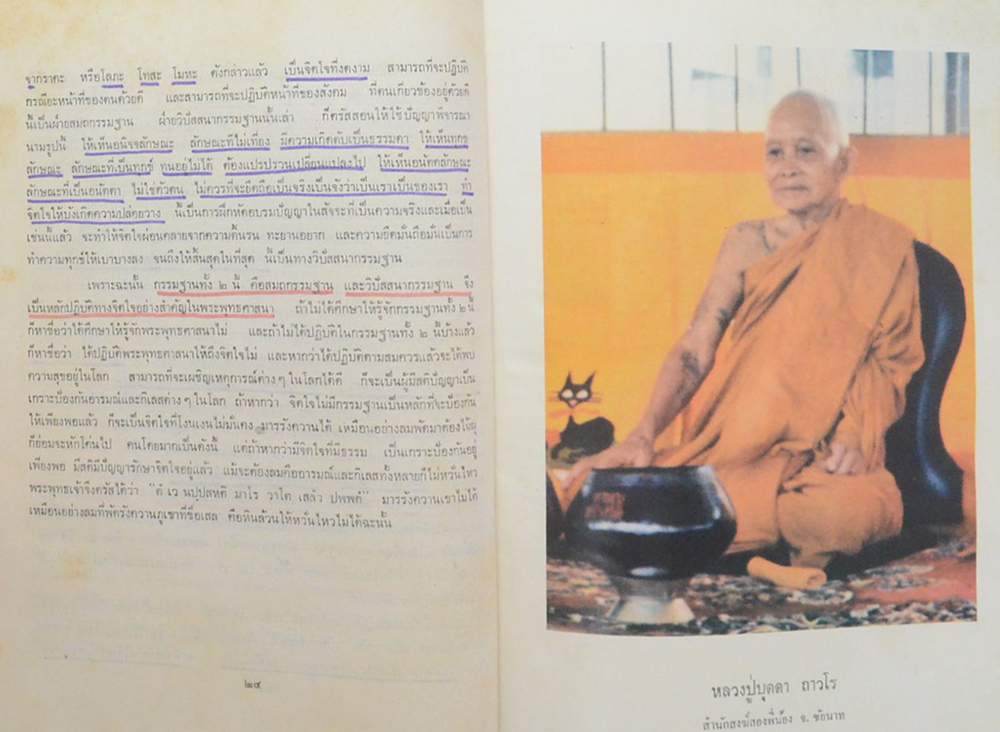 จากราคะ หรือโลภะ โทสะ โมหะ ดังกล่าวแล้ว เป็นจิตใจที่งดงาม สามารถที่จะปฏิบัติ
กรณียะหน้าที่ของตนด้วยดี และสามารถที่จะปฏิบัติหน้าที่ของสังคม ที่ตนเกี่ยวข้องอยู่ด้วยดี
นี้เป็นฝ่ายสมถกรรมฐาน ฝ่ายวิปัสสนากรรมฐานนั้นเล่า ก็ตรัสสอนให้ใช้ปัญญาพิจารณา
นามรูปนี้ ให้เห็นอนิจจลักษณะ ลักษณะที่ไม่เที่ยง มีความเกิดดับเป็นธรรมดา ให้เห็นทุกข
ลักษณะ ลักษณะที่เป็นทุกข์ ทนอยู่ไม่ได้ ต้องแปรปรวนเปลี่ยนแปลงไป ให้เห็นอนัตตลักษณะ
ลักษณะที่เป็นอนัตตา ไม่ใช่ตัวตน ไม่ควรที่จะยึดถือเป็นจริงเป็นจังว่าเป็นเราเป็นของเรา ทำ
จิตใจให้บังเกิดความปล่อยวาง นี้เป็นการฝึกหัดอบรมปัญญาในสัจจะที่เป็นความจริงและเมื่อเป็น
เช่นนี้แล้ว จะทำให้จิตใจผ่อนคลายจากความดิ้นรน ทะยานอยาก และความยึดมั่นถือมั่นเป็นการ
ทำความทุกข์ให้เบาบางลง จนถึงให้สิ้นสุดในที่สุด นี้เป็นทางวิปัสสนากรรมฐาน
เพราะฉะนั้น กรรมฐานทั้ง ๒ นี้ คือสมถกรรมฐาน และวิปัสสนากรรมฐาน จึง
เป็นหลักปฏิบัติทางจิตใจอย่างสำคัญในพระพุทธศาสนา ถ้าไม่ได้ศึกษาให้รู้จักกรรมฐานทั้ง ๒ นี้
ก็หาชื่อว่าได้ศึกษาให้รู้จักพระพุทธศาสนาไม่ และถ้าไม่ได้ปฏิบัติในกรรมฐานทั้ง ๒ นี้บ้างแล้ว
ก็หาชื่อว่า ได้ปฏิบัติพระพุทธศาสนาให้ถึงจิตใจไม่ และหากว่าได้ปฏิบัติตามสมควรแล้วจะได้พบ
ความสุขอยู่ในโลก สามารถที่จะเผชิญเหตุการณ์ต่าง ๆ ในโลกได้ดี ก็จะเป็นผู้มีสติปัญญาเป็น
เกราะป้องกันอารมณ์และกิเลสต่าง ๆ ในโลก ถ้าหากว่า จิตใจไม่มีกรรมฐานเป็นหลักที่จะป้องกัน
ให้เพียงพอแล้ว ก็จะเป็นจิตใจที่โงนเงนไม่มั่นคง มารรังควานได้ เหมือนอย่างลมพัดมาต้องไม้ผุ
ก็ย่อมจะหักโค่นไป คนโดยมากเป็นดังนี้ แต่ถ้าหากว่ามีจิตใจที่มีธรรม เป็นเกราะป้องกันอยู่
เพียงพอ มีสติมีปัญญารักษาจิตใจอยู่แล้ว แม้จะต้องลมคืออารมณ์และกิเลสทั้งหลายก็ไม่หวั่นไหว
พระพุทธเจ้าจึงตรัสไว้ว่า “ตํ เว นปฺปสหติ มาโร วาโต เสลํว ปพฺพตํ” มารรังควานเขาไม่ได้
เหมือนอย่างลมที่พัดรังควานภูเขาที่ชื่อเสล คือหินล้วนให้หวั่นไหวไม่ได้ฉะนั้น
๒๔
หลวงปู่บุดดา ถาวโร
สำนักสงฆ์สองพี่น้อง จ. ชัยนาท